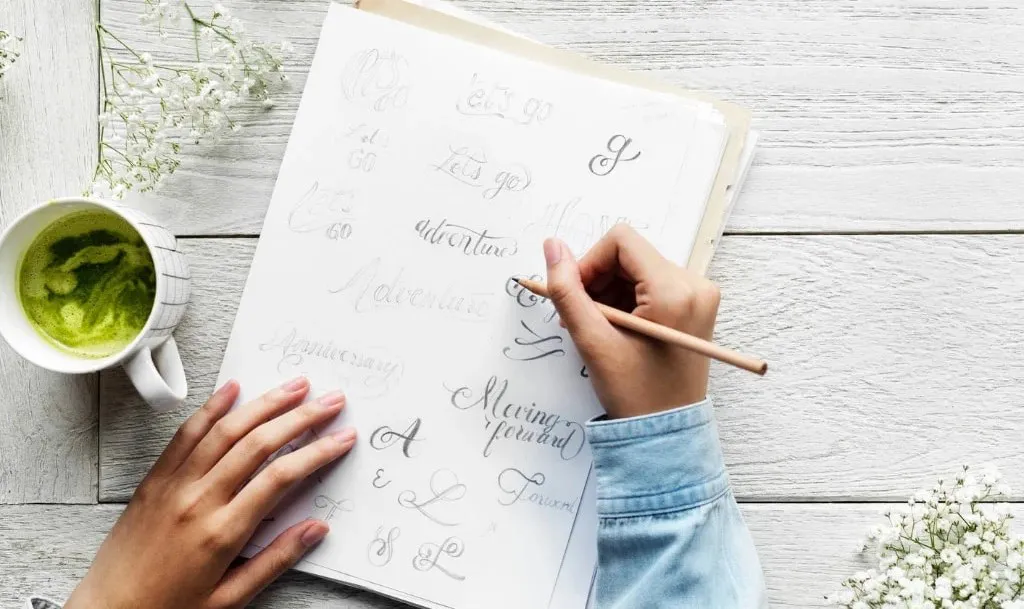 Let's go
g
Let's
GO
Let's go
GO
adventure
Adventure
Anniversary
Moving
forward
A
E
L
Forward
S
L